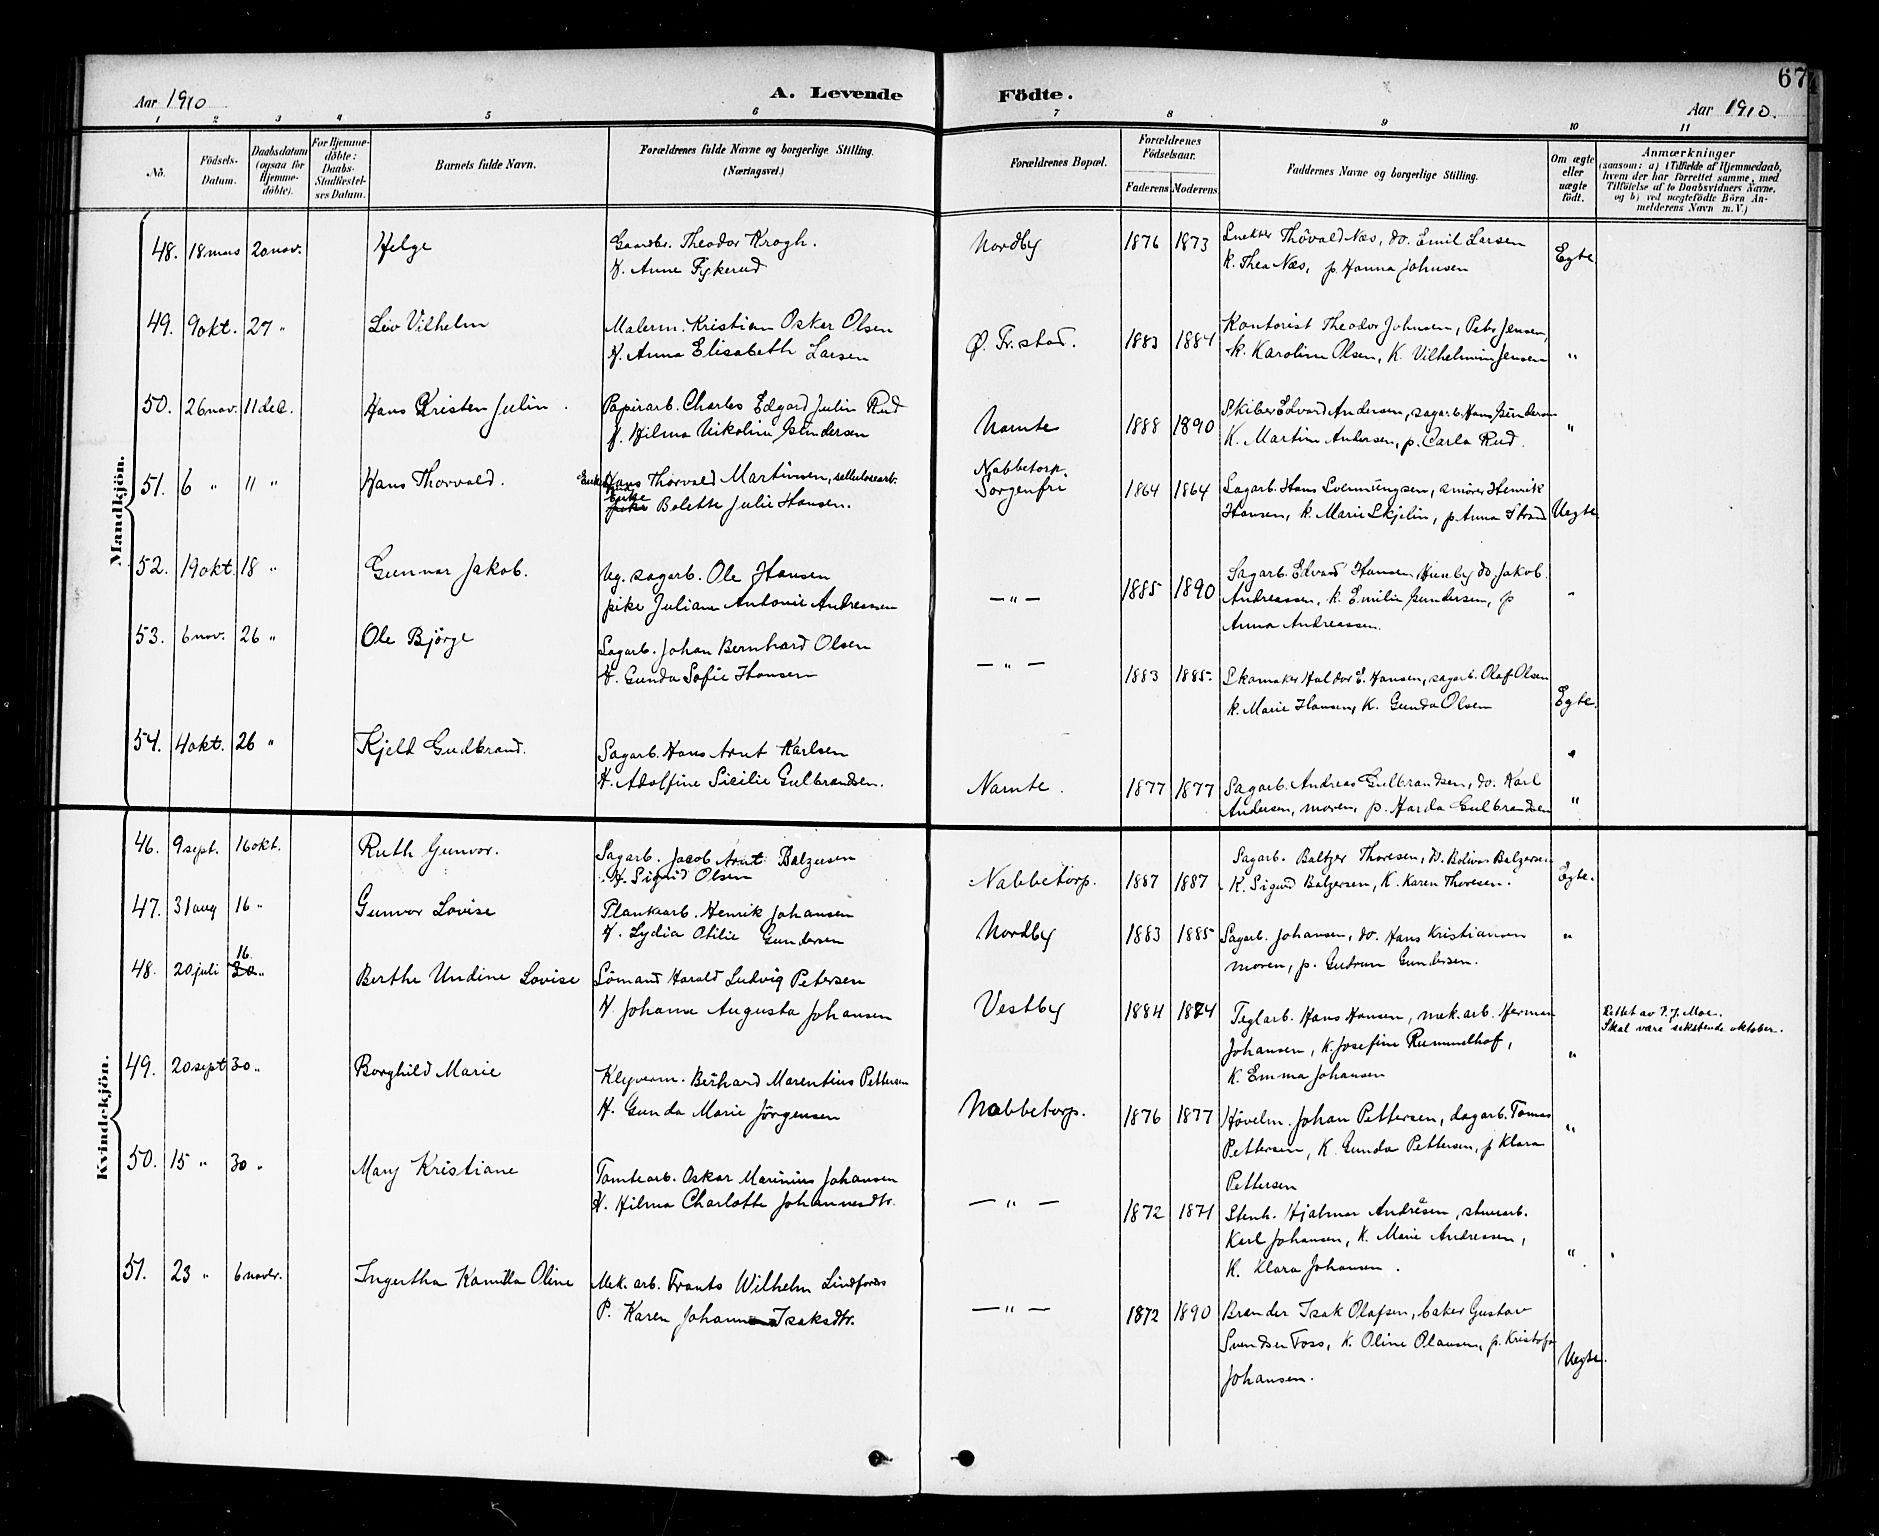 67
Aar 1910
A. Levende Födte.
Aar 1910.
1 2 3 4 5 6 7 8 9 10 11
No.
Födsels-Datum.
Daabsdatum (ogsaa for Hjemme-döbte).
For Hjemme-döbte: Daabs-Stadfæstel-ses Datum.
Barnets fulde Navn.
Forældrenes fulde Navne og borgerlige Stilling. (Næringsvei.)
Forældrenes Bopæl.
Forældrenes Födselsaar.
Faderens Moderens
Faddernes Navne og borgerlige Stilling.
Om ægte eller uægte födt.
Anmærkninger
(saasom: a) i Tilfælde af Hjemmedaab, hvem der har forrettet samme, med Tilföielse af to Daabsvidners Navne, og b) ved uægtefödte Börn An-melderens Navn m. V.)
Mandkjön.
48. 18 mars 20 nov. Helge
Gaardbr. Theodor Krogh.
H. Anne Fykerud
Nordby 1876 1873
Snekker Thorvald Næs, do. Emil Larsen
k. Thea Næs, p. Hanna Johnsen
Egte
49. 9 okt. 27 " Leiv Vilhelm
Malerm. Kristian Oskar Olsen
H. Anna Elisabeth Larsen
Ø. Fr.stad. 1883 1884
Kontorist Theodor Johnsen, Peter Jensen,
k. Karoline Olsen, K. Vilhelmine Jensen
"
50. 26 nov. 11 dec. Hans Kristen Julin.
Papirarb. Charles Edgard Julin Rud
f. Hilma Nikoline Gundersen
Namte 1888 1890
Skiber Edvard Andersen, sagarb. Hans Gundersen
K. Martine Andersen, p. Carla Rud.
"
51. 6 " 11 " Hans Thorvald.
Enkem. Hans Thorvald Martinsen, cellulosearb.
Enke
pike Bolette Julie Hansen.
Nabbetorp.
Sorgenfri 1864 1864
Sagarb. Hans Svenningsen, smörer Henrik
Hansen, k. Marie Skjelin, p Anna Strand
Uegte
52. 19 okt. 18 " Gunnar Jakob.
Ug. sagarb. Ole Hansen
pike Juliane Antonie Andreassen
— " — 1885 1890
Sagarb. Edvard Hansen Hunby do. Jakob
Andreassen, k. Emilie Gundersen, p
Anna Andreassen.
"
53. 6 nov. 26 " Ole Bjørge
Sagarb. Johan Bernhard Olsen
H. Gunda Sofie Hansen
— " — 1883 1885.
Skomaker Haldor E. Hansen, sagarb. Olaf Olsen
k. Marie Hansen, K. Gunda Olsen
Egte.
54. 4 okt. 26 " Kjeld Gudbrand.
Sagarb. Hans Arnt Karlsen
H. Adolfine Sicilie Gulbrandsen.
Namte. 1877 1877
Sagarb. Andreas Gulbrandsen, do. Karl
Andersen, moren, p. Harda Gulbrandsen
"
Kvindekjön.
46. 9 sept. 16 okt. Ruth Gunvor.
Sagarb. Jacob Arnt Balzersen
H. Sigrid Olsen
Nabbetorp. 1887 1887
Sagarb. Baltzer Thoresen, do. Bolivar Balzersen
K. Sigrid Balzersen, K. Karen Thoresen.
Egte.
47. 31 aug 16 " Gunvor Lovise
Plankearb. Henrik Johansen
H. Lydia Otilie Gundersen
Nordby 1883 1885
Sagarb. Johansen, do. Hans Kristiansen
moren, p. Gudrun Gundersen.
"
48. 20 juli 16. 30 " Berthe Undine Lovise
Sømand Harald Ludvig Petersen
H. Johanne Augusta Johansen
Vestby 1884 1884
Teglarb. Hans Hansen, mek. arb. Herman
Johansen, K. Josefine Rummelhof,
K. Emma Johansen
"
Rettet av T. J. Moe.
Skal være sekstende oktober.
49. 20 sept 30 " Borghild Marie
Kløverm. Berhard Marentius Pettersen
H. Gunda Marie Jørgensen
Nabbetorp. 1876 1877
Høvelm. Johan Pettersen, dagarb. Tomas
Pettersen, K. Gunda Pettersen, p Klara
Pettersen
"
50. 15 " 30 " Mary Kristiane
Tomtearb. Oskar Marinius Johansen
H. Hilma Charlotte Johannesdtr.
— " — 1872 1871
Stenh. Hjalmar Andrésen, stuearb.
Karl Johansen, K. Marie Andresen,
K. Klara Johansen.
"
51. 23 " 6 novbr. Ingertha Kamilla Oline
Mek. arb. Frants Wilhelm Lindfores
P. Karen Johanne Isaksdtr.
— " — 1872 1890
Brænder Isak Olafsen, baker Gustav
Svendsen Foss, K. Oline Olausen, p. Kristofa
Johansen.
Uegte.